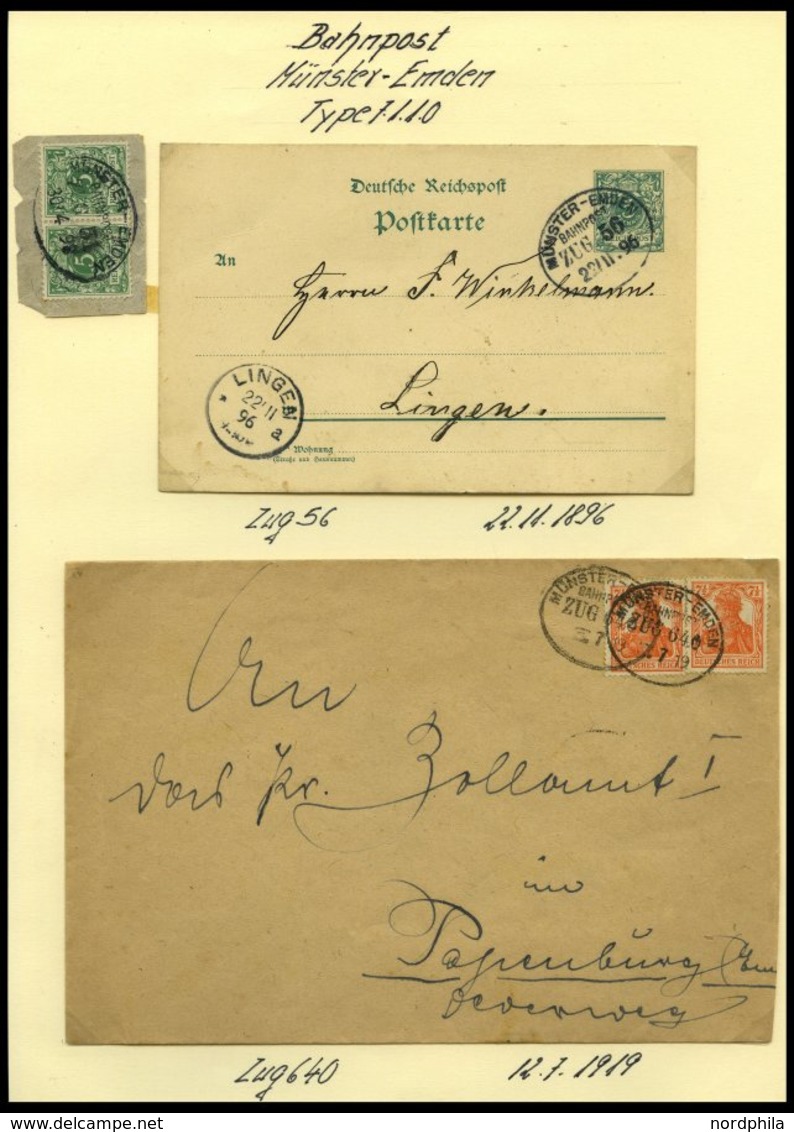 Bahnpost
Münster-Emden
Type 7.1.1.0
MÜNSTER-EMDEN
30 4 98
5
5
Deutsche Reichspost
Postkarte
MÜNSTER-EMDEN
BAHNPOST
ZUG 56
22/11.96
An
Herrn F. Winkelmann.
LINGEN
22/11
96
* a
Lingen.
Wohnung
(Straße und Hausnummer)
Zug 56
22.11.1896
MÜNSTER-
ZUG
MÜNSTER-EMDEN
BAHNPOST
ZUG 640
7 19
7½
DEUTSCHES REICH
DEUTSCHES REICH
An
das Pr. Zollamt I
in
Papenburg Em
Zug 640
12.7.1919
www.delcampe.net
nordphila